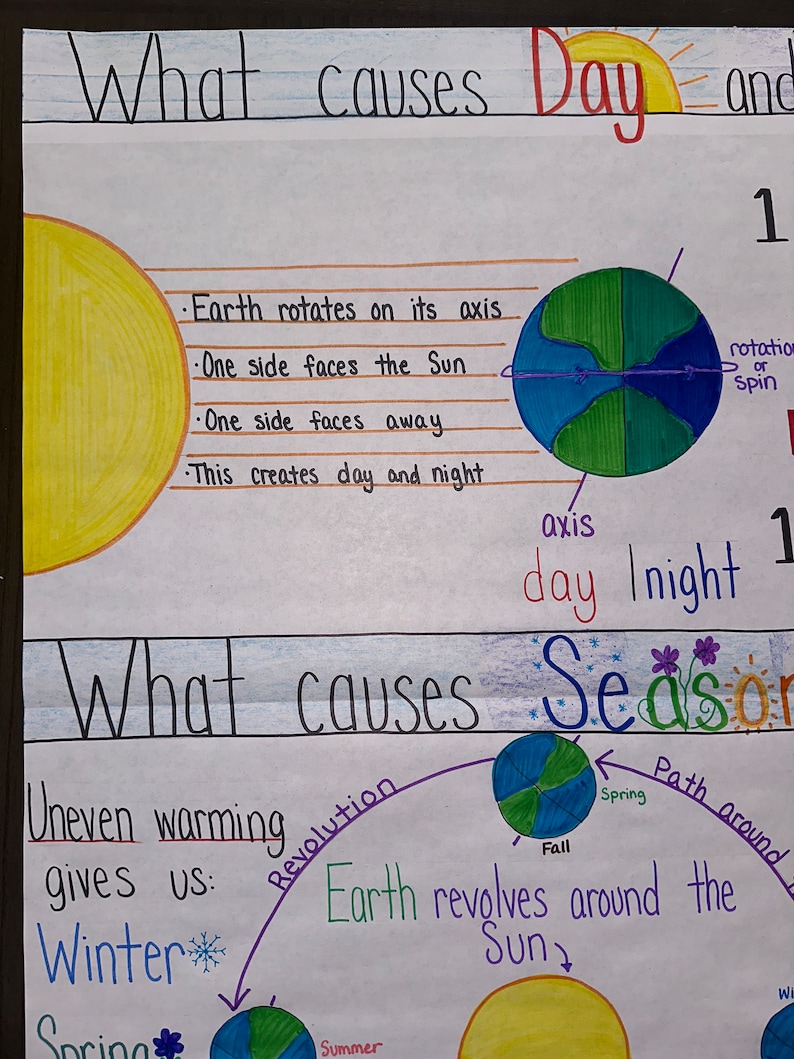 What causes Day and
1
· Earth rotates on its axis
· One side faces the Sun
· One side faces away
· This creates day and night
or
spin
axis
1
day | night
What causes
Uneven warming
gives us:
Winter
Spring
Revolution
Path around
Spring
Fall
Earth revolves around the
Sun
Summer